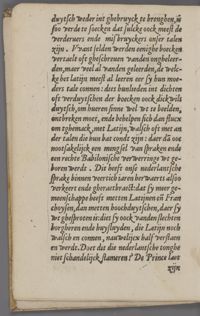 duytsch weder int ghebruyck te brenghen, ū
soo verde te soecken dat sulcke oock mesē de
verdervers ende misbruyckers onser talen
zijn. V vant selden werden eenighe boecken
vertaelt oft gheschreuen vanden ongheleer-
den, maer veel al vanden geleerden, de welc-
ke het latijn mesē al leeren eer sy hun moe-
ders tale connen: dies hunlieden int dichten
oft verduytschen der boecken oock dickwils
duytsch, om hueren sinne wel wt te beelden,
ontbreken moet, ende behelpen sich dan fluck
om tghemack, met Latijn, walsch oft met an
der talen die hun bat condt zijn: daer wt ooc
nootsakelijck een mengsel van spraken ende
een rechte Babilonische verwerringe wt ge-
boren werdt. Die heeft onse nederlantsche
sprake binnen veertich iaren herwaerts alsoo
verkeert ende ghetaetbraeckt: dat sy meer ge-
meenschappe heeft metten Latijnen eñ Fran
choysen, dan metten hoochduytschen, daer sy
wt ghesproten is: dies sy oock vanden slechten
borgheren ende huysluyden, die Latijn noch
walsch en connen, nauwelijcx half verstaen
en werde. Doet dus die nederlantsche tonghe
niet schandelijck stameren? De Prince laet
zijn